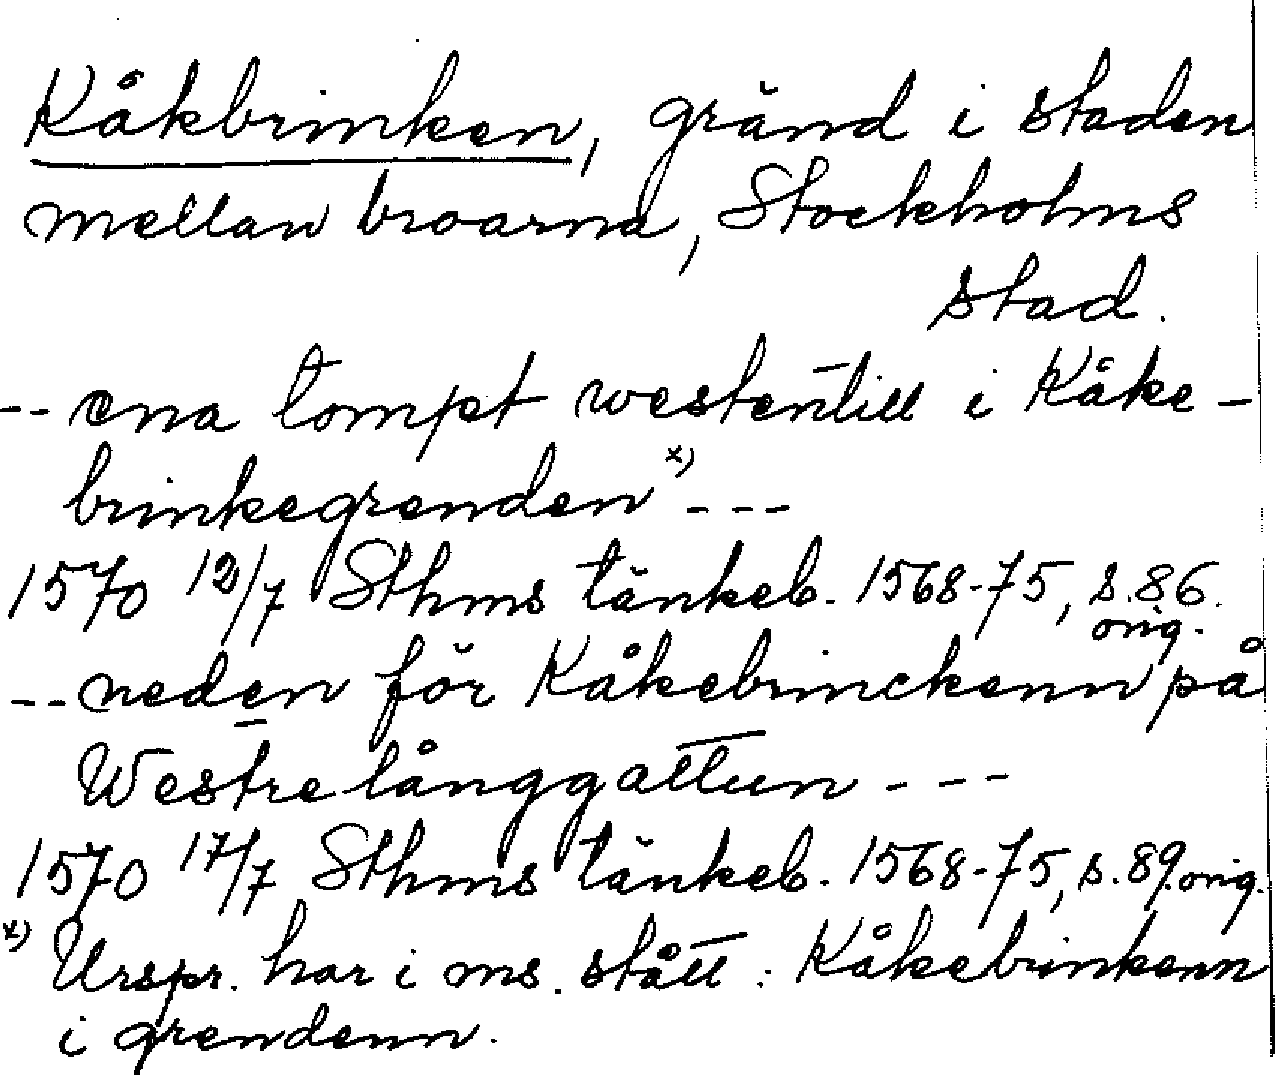 Kåkbrinken, gränd i staden
mellan broarna, Stockholms
stad.
-- ena tompt westentill i Kåke-
brinkegrenden x) ---
1570 12/7 Sthms tänkeb. 1568-75, s. 86.
orig.
-- neden för Kåkebrinckenn på
Westrelånggattun ---
1570 17/7 Sthms tänkeb. 1568-75, s. 89. orig.
x) Urspr. har i ms. stått: Kåkebrinkenn
i grendenn.